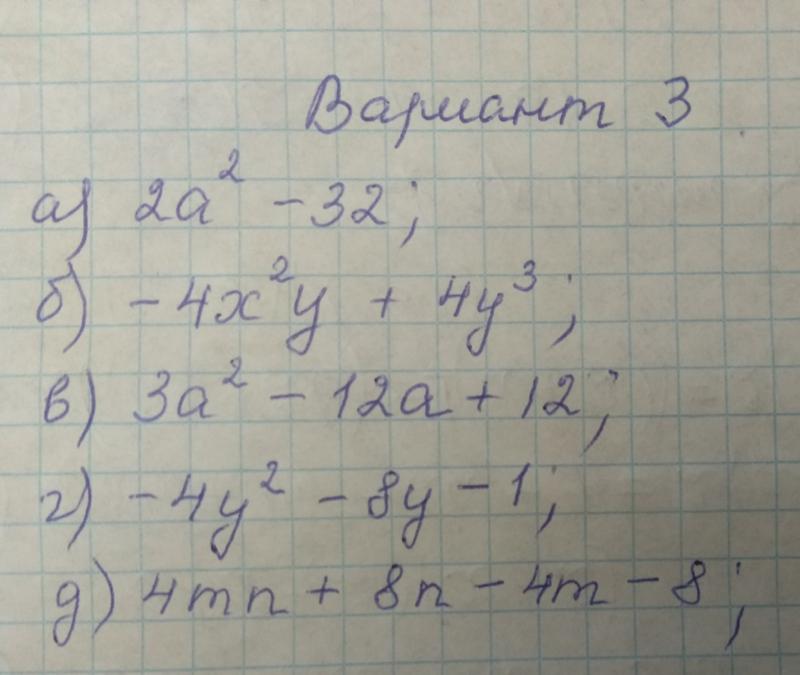 Вариант 3
а) 2a² - 32;
б) - 4x²y + 4y³;
в) 3a² - 12a + 12;
г) - 4y² - 8y - 1;
д) 4mn + 8n - 4m - 8;